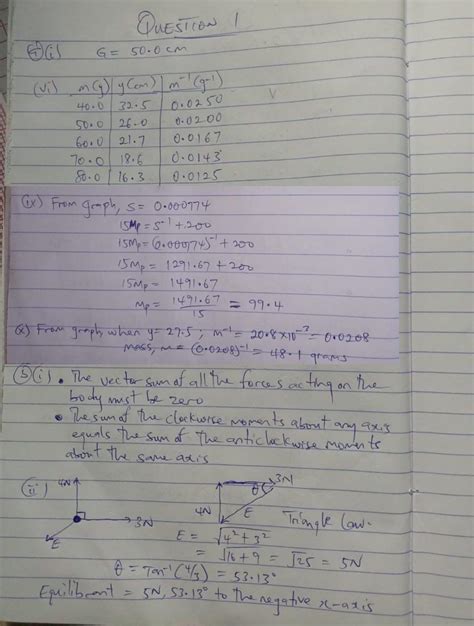 QUESTION 1
(i) G = 50.0cm
(vi) m(g) y(cm) m⁻¹(g⁻¹)
40.0 32.5 0.0250
50.0 26.0 0.0200
60.0 21.7 0.0167
70.0 18.6 0.0143
80.0 16.3 0.0125
(ix) From graph, S = 0.000774
15Mp = S⁻¹ + 200
15Mp = (0.000774)⁻¹ + 200
15Mp = 1291.67 + 200
15Mp = 1491.67
Mp = 1491.67/15 = 99.4
(x) From graph when y = 27.5; m⁻¹ = 20.8 x10⁻³ = 0.0208
mass, m = (0.0208)⁻¹ = 48.1 grams
(b)(i) • The vector sum of all the forces acting on the
body must be zero
• The sum of the clockwise moments about any axis
equals the sum of the anticlockwise moments
about the same axis
(ii)
4N
3N
E
3N
θ
4N
E
Triangle Law.
E = √4² + 3²
= √16 + 9 = √25 = 5N
θ = Tan⁻¹(4/3) = 53.13°
Equilibrant = 5N, 53.13° to the negative x-axis